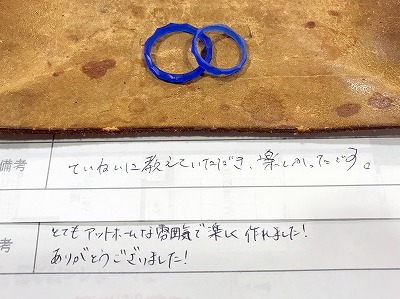 備考
ていねいに教えていただき、楽しかったです。
とてもアットホームな雰囲気で楽しく作れました!
考
ありがとうございました!